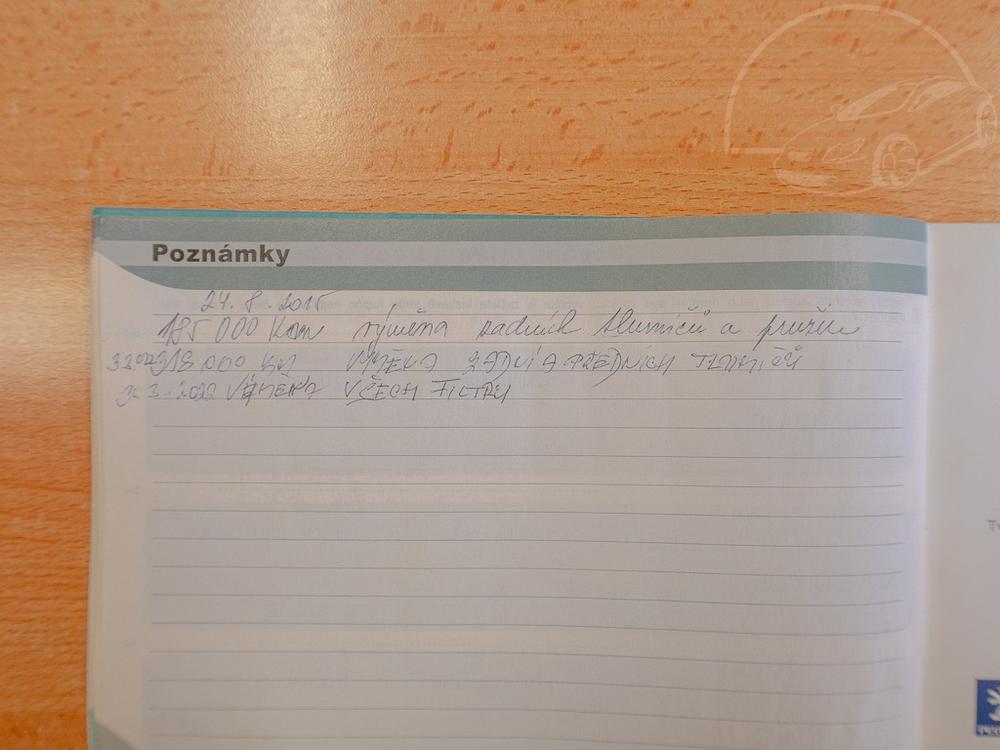 Poznámky
24. 8. 2015
185 000 km výměna zadních tlumičů a pružin
318 000 KM VÝMĚNA ZADNÍ A PŘEDNÍCH TLUMIČŮ
3. 2022 VÝMĚNA VŠECH FILTRU